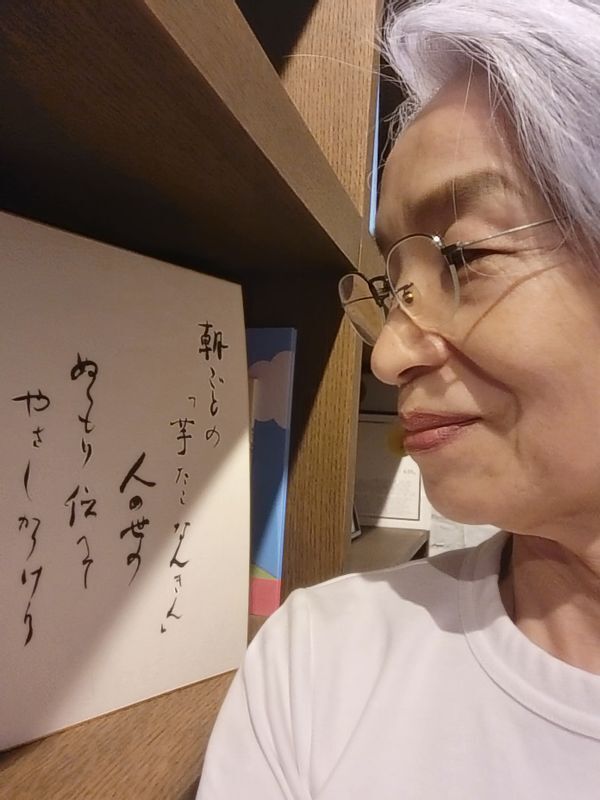 朝ごとの
「芋たこなんきん」
人の世の
ぬくもり伝へて
やさしかりけり